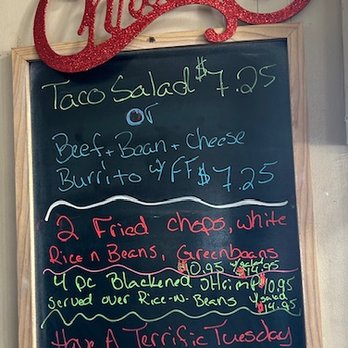 Taco Salad $7.25
or
Beef + Bean + Cheese
Burrito w/ FF $7.25
2 Fried chops, white
Rice n Beans, Greenbeans
$10.95 w/ salad $14.95
4 pc Blackened Shrimp $10.95
Served over Rice-N-Beans w/ salad $14.95
Have A Terrific Tuesday